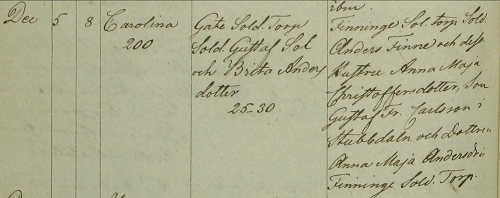 ibm.
Dec 5 8 Carolina Gate Sold. Torp Finninge Sol. torp Sold.
200 Sold. Gustaf Sol Anders Finne och dess
och Brita Anders Hustru Anna Maja
dotter Christoffersdotter, Son
25-30 Gustaf Fr. Carlsson i
Stubbdaln och Dottren
Anna Maja Andersdr i
Finninge Sold. Torp.